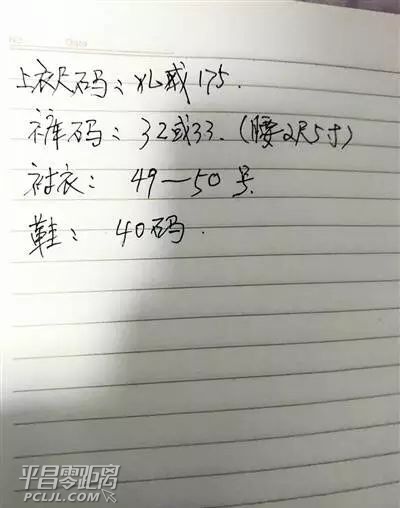 No.
Date
上衣尺码：XL或175.
裤码：32或33.（腰2尺5寸）
衬衣：49—50号.
鞋：40码.
平昌零距离
PCLJL.COM